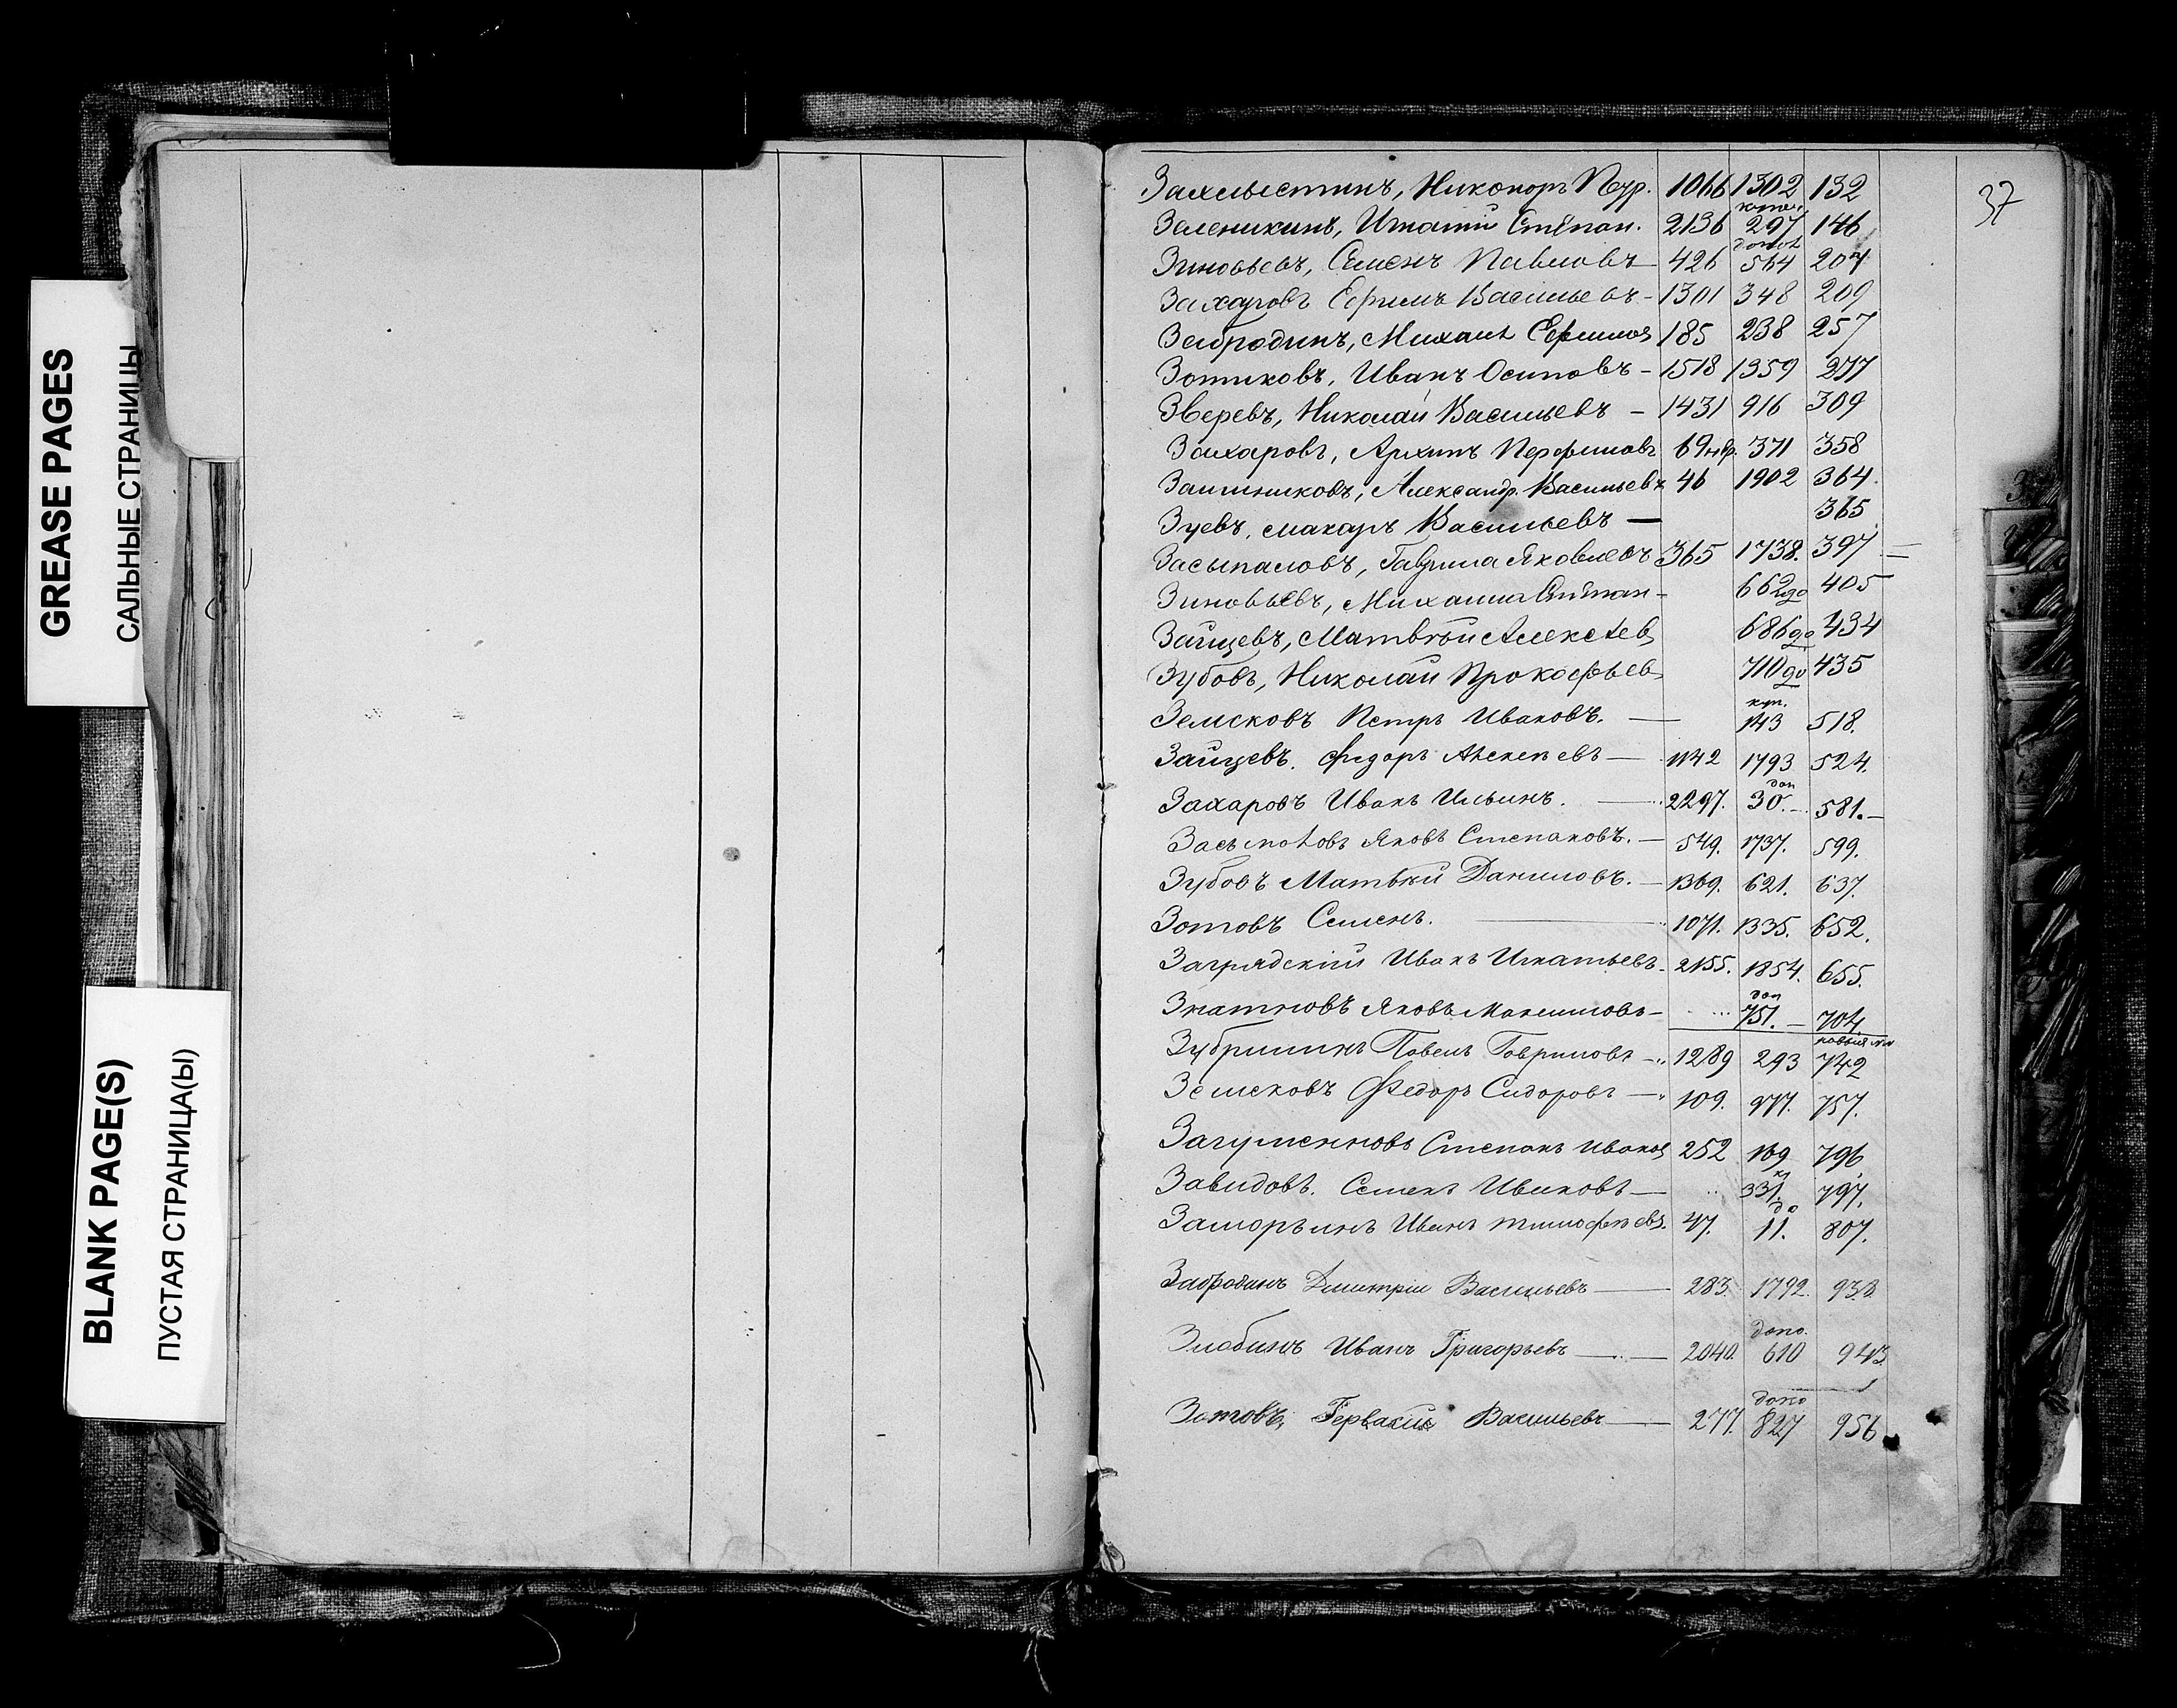 GREASE PAGES
САЛЬНЫЕ СТРАНИЦЫ
BLANK PAGE(S)
ПУСТАЯ СТРАНИЦА(Ы)
37
Захлыстинъ, Никоноръ 1066 1302 132
Зеленикинъ, Игнатий Степан. 2136 297 146
Зиновьевъ, Семенъ Павловъ — 426 564 204
Захаровъ Ефимъ Васильевъ - 1301 348 209
Забродинъ, Михаил Ефимов 185 238 257
Зотиковъ, Иванъ Осиповъ - 1518 1359 277
Зверевъ, Николай Васильевъ - 1431 916 309
Захаровъ, Архипъ Перфиловъ 69 371 358
Александр. Васильевъ 46 1902 364.
Зуевъ, Макаръ Васильевъ — 365
Засыпаловъ, Гаврила Яковлевъ 365 1738. 397
Зиновьевъ, Михаила Степан - 662 до 405
Зайцевъ, Матвѣй Алексѣев 686 до 434
Зубовъ, Николай Прокофьев 710 до 435
куп.
Земсковъ Петръ Ивановъ. — 143 518.
Зайцевъ. Федоръ Алексѣевъ — 1142 1793 524.
доп
Захаровъ Иванъ Ильинъ. — 2297. 30. — 581. —
Яковъ Степановъ. — 549. 1737. 599.
Зубовъ Матвѣй Даниловъ. — 1369. 621. 637.
Зотовъ Семенъ. — 1071. 1335. 652.
Загрядскій Иванъ Игнатьевъ. 2155. 1854. 655.
доп
Знатновъ Яковъ Максимовъ — 751. — 704.
новыя №№
Зубрилинъ Павелъ Гавриловъ — 1289 293 742
Земсковъ Федоръ Сидоровъ — 109. 977. 757.
Загуменновъ Степанъ Иванов 252 169 796
Завидовъ. Семенъ Ивановъ — 331. 797.
до
Заморъинъ Иванъ Тимофѣевъ. 47. 11. 807.
Забродинъ Дмитрій Васильевъ — 283. 1792. 933.
допо.
Злобинъ Иванъ Григорьевъ — 2040. 610 943.
допо
Зотовъ, Гервасий Васильевъ — 277. 827 956